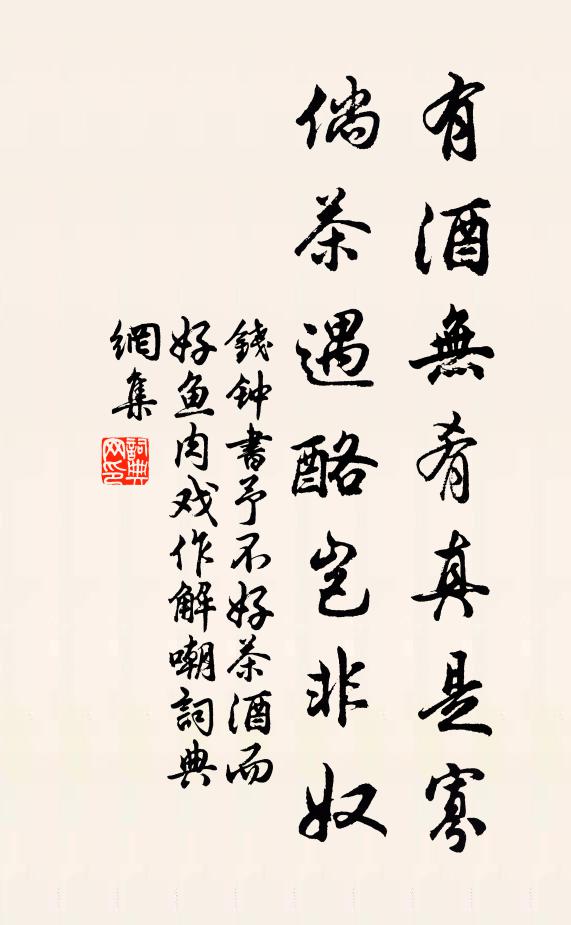 有酒無肴真是寡
倘茶遇酪豈非奴
錢鈡書予不好茶酒而
好鱼肉戏作解嘲詞典
網集
詞典
网印